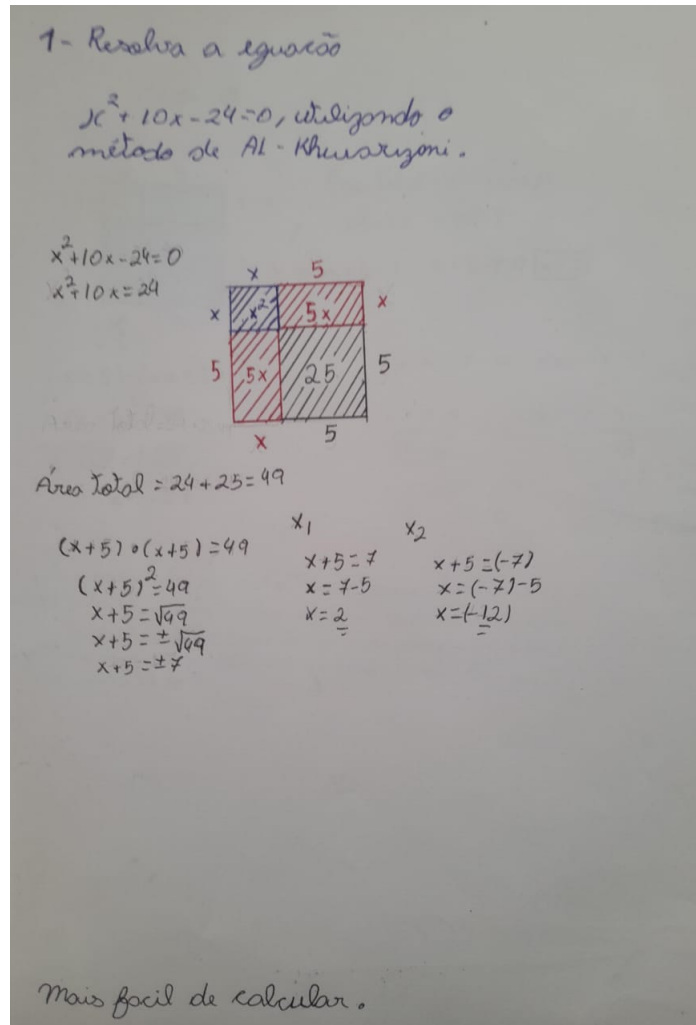 1- Resolva a equacão
x²+10x-24=0, utilizando o
método de AL-Khwarizmi.
x²+10x-24=0
x²+10x=24
x 5
x x² 5x x
5 5x 25 5
x 5
Área total = 24+25=49
(x+5)•(x+5)=49
(x+5)²=49
x+5=√49
x+5=±√49
x+5=±7
x₁
x+5=7
x=7-5
x=2
x₂
x+5=(-7)
x=(-7)-5
x=(-12)
Mais facil de calcular.